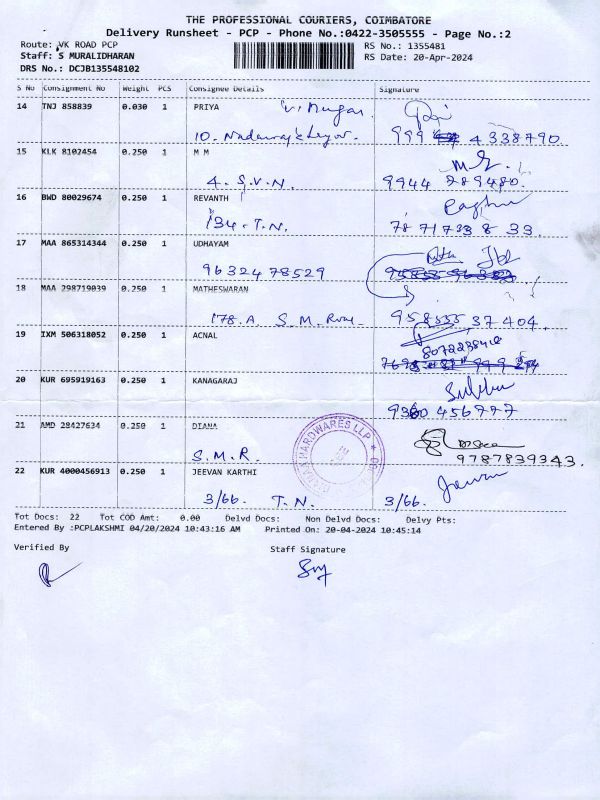 THE PROFESSIONAL COURIERS, COIMBATORE
Delivery Runsheet - PCP - Phone No.:0422-3505555 - Page No.:2
Route: VK ROAD PCP
RS No.: 1355481
Staff: S MURALIDHARAN
RS Date: 20-Apr-2024
DRS No.: DCJB135548102
S No Consignment No Weight PCS Consignee Details Signature
14 TNJ 858839 0.030 1 PRIYA
999 4338790
15 KLK 8102454 0.250 1 M M
4. S.V.N. 9944 289480.
16 BWD 80029674 0.250 1 REVANTH
134. T.N. 78 71733 8 33
17 MAA 865314344 0.250 1 UDHAYAM
9632478529
18 MAA 298719039 0.250 1 MATHESWARAN
178.A S.M. 958555 37404
19 IXM 506318052 0.250 1 ACNAL
20 KUR 695919163 0.250 1 KANAGARAJ
9360 456777
21 AMD 28427634 0.250 1 DIANA
HARDWARES LLP
S.M.R. 9787839343.
22 KUR 4000456913 0.250 1 JEEVAN KARTHI Jeevan
3/66. T.N. 3/66.
Tot Docs: 22 Tot COD Amt: 0.00 Delvd Docs: Non Delvd Docs: Delvy Pts:
Entered By :PCPLAKSHMI 04/20/2024 10:43:16 AM Printed On: 20-04-2024 10:45:14
Verified By Staff Signature